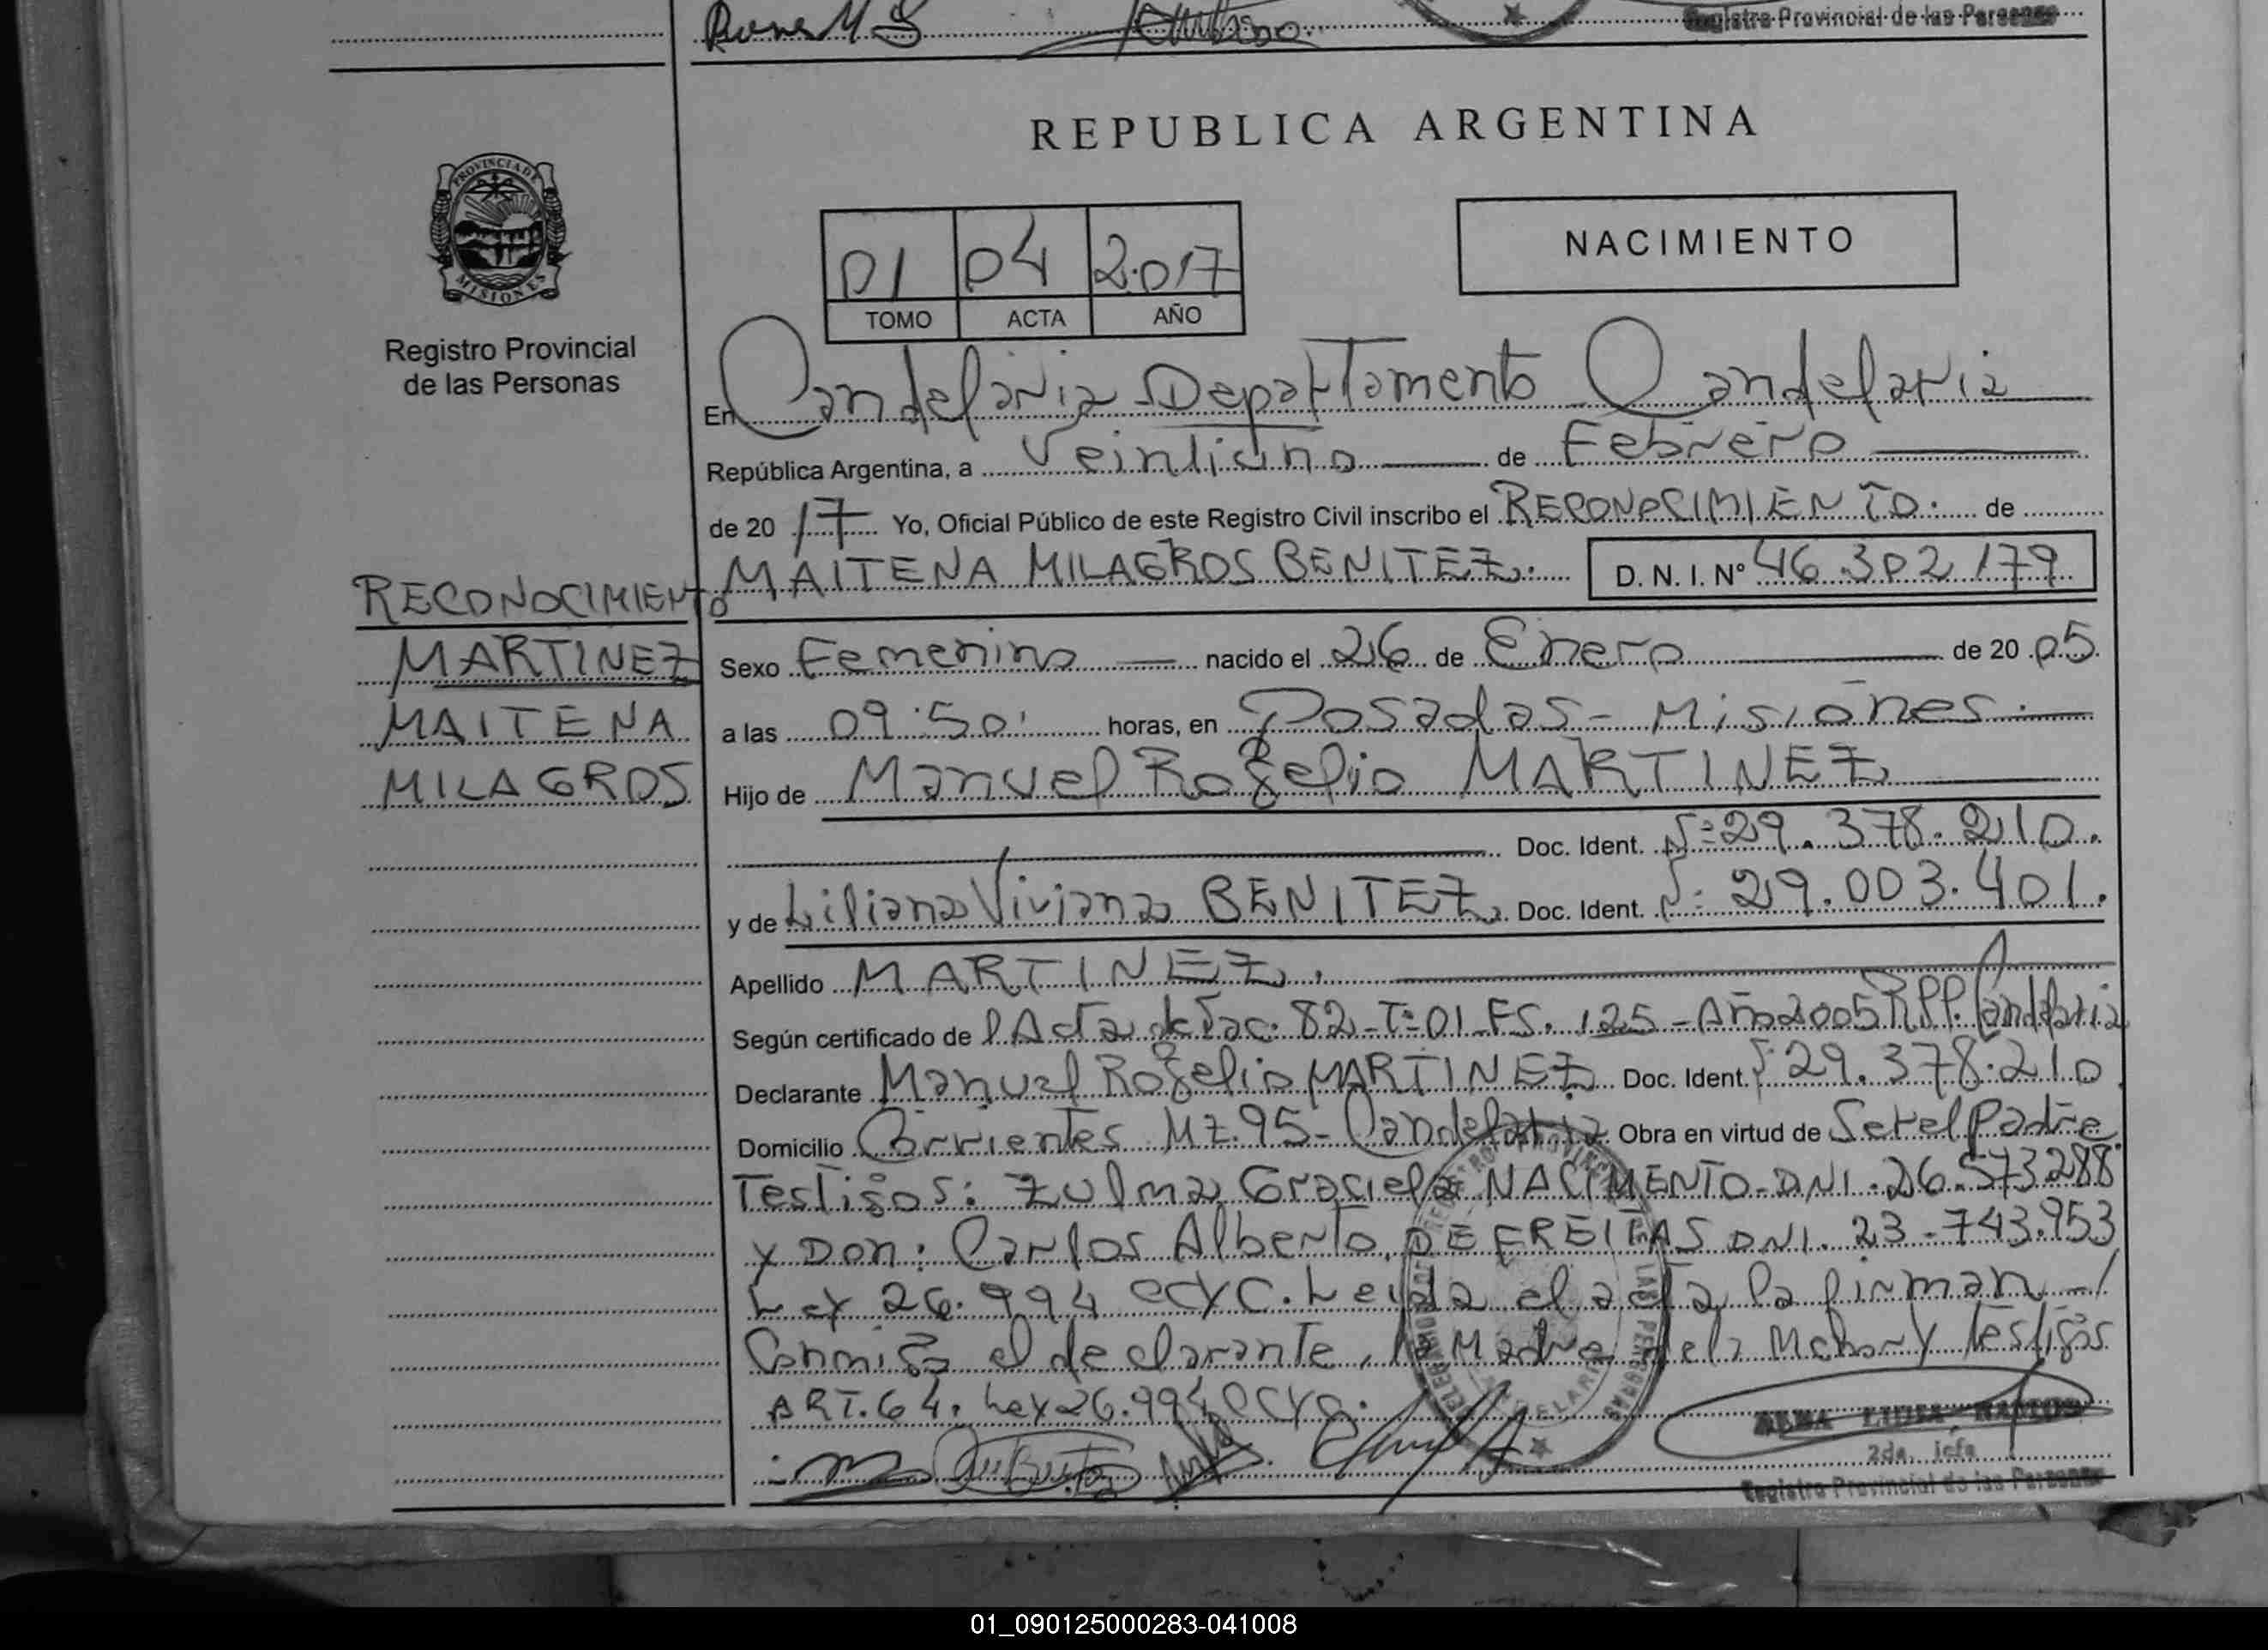 Registro Provincial de las Personas
REPUBLICA ARGENTINA
PROVINCIA DE
MISIONES
Registro Provincial
de las Personas
01 04 2.017
TOMO ACTA AÑO
NACIMIENTO
En Candelaria Departamento Candelaria
República Argentina, a Veintiuno de Febrero
de 20 17 Yo, Oficial Público de este Registro Civil inscribo el RECONOCIMIENTO. de
MAITENA MILAGROS BENITEZ. D. N. I. Nº 46.302.179
RECONOCIMIENTO
MARTINEZ
MAITENA
MILAGROS
Sexo Femenino nacido el 26 de Enero de 20 05
a las 09:50 horas, en Posadas - Misiones.
Hijo de Manuel Rogelio MARTINEZ
Doc. Ident. 29.378.210.
y de Liliana Viviana BENITEZ Doc. Ident. 29.003.401.
Apellido MARTINEZ.
Según certificado de Acta de Nac. 82 - T=01 - FS. 125 - Año 2005 RPP. Candelaria
Declarante Manuel Rogelio MARTINEZ Doc. Ident. 29.378.210
Domicilio Corrientes Mz. 95 - Candelaria Obra en virtud de Ser el Padre
Testigos: Zulma Graciela NACIMENTO - DNI. 26.573.288
y Don: Carlos Alberto DE FREITAS DNI. 23-743.953
Ley 26.994 CCYC. Leida el acta la firman -/
Conmigo el declarante, la Madre de la Menor y testigos
ART. 64. Ley 26.994 CCYC.
2da. jefa
Registro Provincial de las Personas
01_090125000283-041008